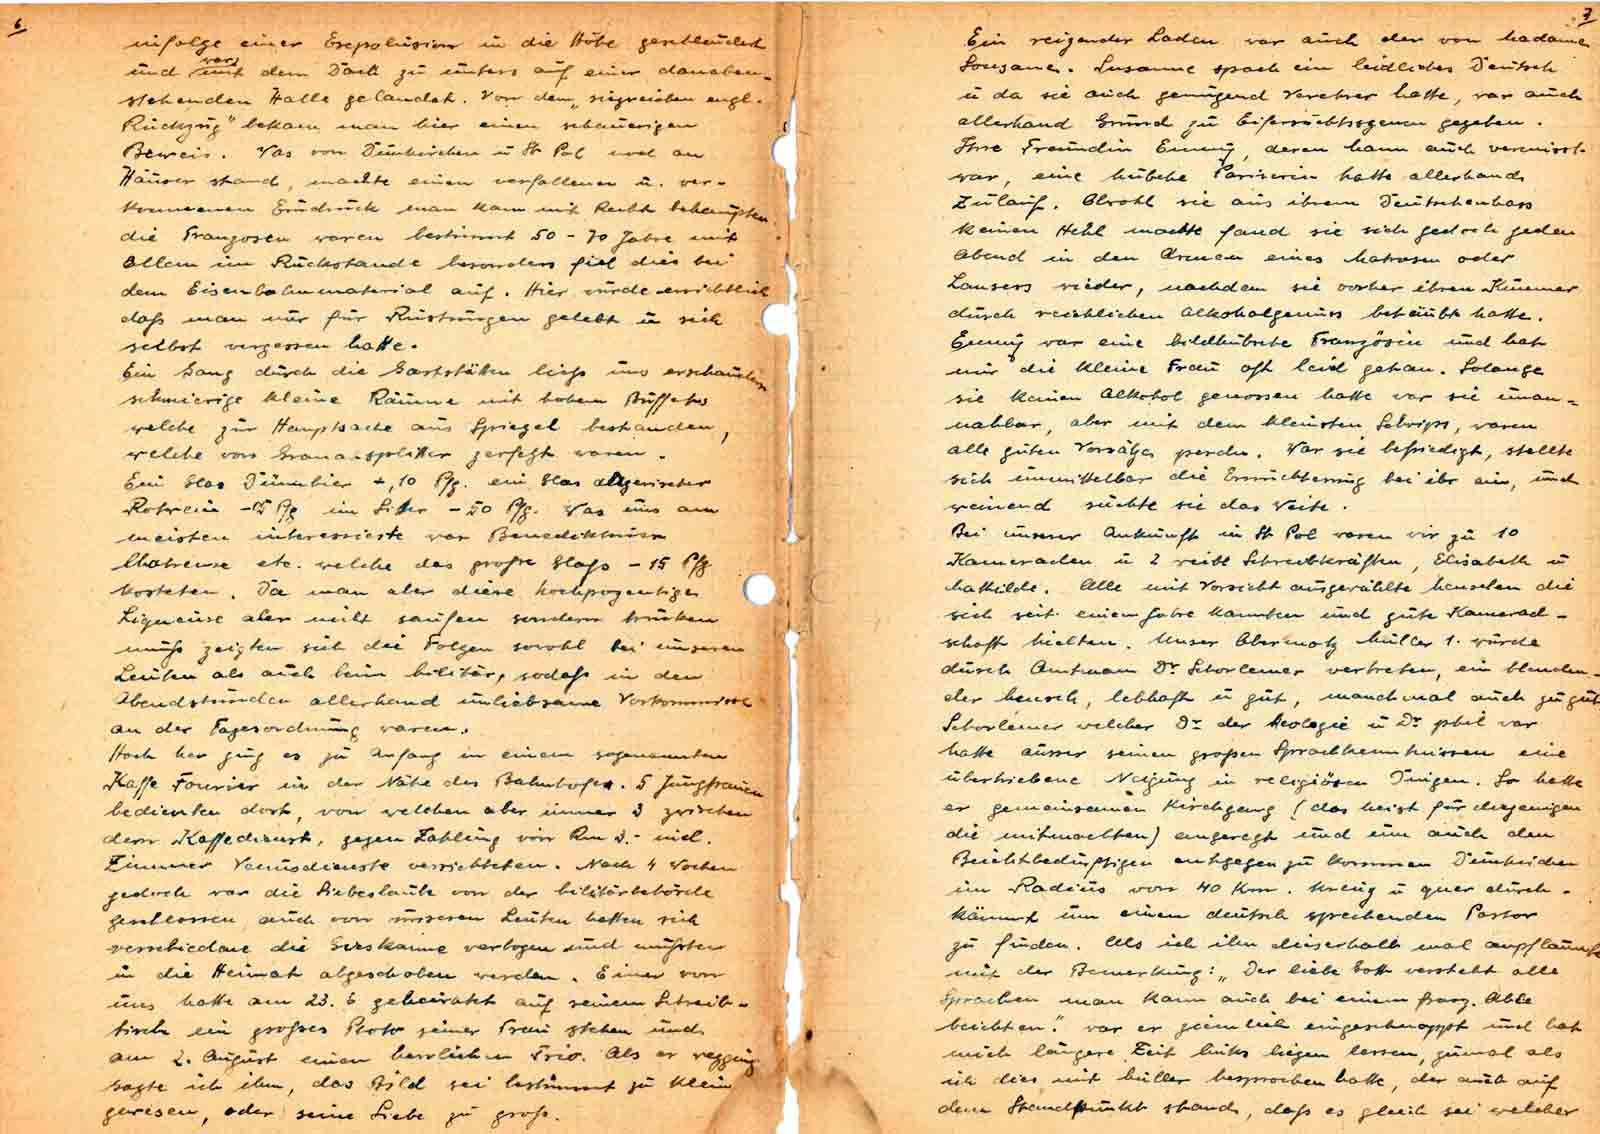 6
infolge einer Exepolusion in die Höhe geschleudert
und war mit dem Dach zu unterst auf einer daneben-
stehenden Halle gelandet. Von dem „siegreichen engl.
Rückzug" bekam man hier einen schauerigen
Beweis. Was von Dünkirchen u St Pol noch an
Häuser stand, machte einen verfallenen u. ver-
kommenen Eindruck man kann mit Recht behaupten
die Franzosen waren bestimmt 50 - 70 Jahre mit
Allem im Rückstande besonders fiel dies bei
dem Eisenbahnmaterial auf. Hier wurde ersichtlich
daß man nur für Rüstungen gelebt u sich
selbst vergessen hatte.
Ein Gang durch die Gaststätten ließ uns erschaudern
schmierige kleine Räume mit hohem Büffets
welche zur Hauptsache aus Spiegel bestanden,
welche von Granatsplitter zerfetzt waren.
Ein Glas Dünnbier -,10 Pfg. ein Glas algerischer
Rotwein -15 Pfg im Liter -50 Pfg. Was uns am
meisten interessierte war Benediktiner
Chatreuse etc. welche das große Glaß - 15 Pfg
kosteten. Da man aber diese hochprozentiges
Liqueure aber nicht saufen sondern trinken
muß zeigten sich die Folgen sowohl bei unseren
Leuten als auch beim Militär, sodaß in den
Abendstunden allerhand unliebsame Vorkommnisse
an der Tagesordnung waren.
Hoch her ging es zu Anfang in einem sogenannten
Kaffe Fourier in der Nähe des Bahnhofes. 5 Jungfrauen
bedienten dort, von welchen aber immer 3 zwischen
dem Kaffedienst, gegen Zahlung von Rm 3.- incl.
Zimmer Venusdienste verrichteten. Nach 4 Wochen
jedoch war die Liebeslaube von der Militärbehörde
geschlossen auch von unseren Leuten hatten sich
verschiedene die Gieskanne verbogen und mußten
in die Heimat abgeschoben werden. Einer von
uns hatte am 23. 6 geheiratet auf seinem Schreib-
tisch ein großes Photo seiner Frau stehen und
am 2. August einen herrlichen Trio. Als er wegging
sagte ich ihm, das Bild sei bestimmt zu klein
gewesen, oder seine Liebe zu groß.
7
Ein reizender Laden war auch der von Madame
Sousane. Susanne sprach ein leidliches Deutsch
u da sie auch genügend Verehrer hatte, war auch
allerhand Grund zu Eifersuchtsszenen gegeben.
Ihre Freundin Emmy, deren Mann auch vermisst
war, eine hübche Pariserin hatte allerhand
Zulauf. Obwohl sie aus ihrem Deutschenhass
keinen Hehl machte fand sie sich jedoch jeden
Abend in den Armen eines Matrosen oder
Lansers wieder, nachdem sie vorher ihren Kummer
durch reichlichen Alkoholgenuss betäubt hatte.
Emmy war eine bildhübsche Französin und hat
mir die kleine Frau oft leid getan. Solange
sie keinen Alkohol genossen hatte war sie unan-
nahbar, aber mit dem kleinsten Schwips, waren
alle guten Vorsätze perdu. War sie befriedigt, stellte
sich unmittelbar die Ernüchterung bei ihr ein, und
weinend suchte sie das Weite.
Bei unserer Ankunft in St Pol waren wir zu 10
Kameraden u 2 weibl Schreibkräften, Elisabeth u
Mathilde. Alle mit Vorsicht ausgewählte Menschen die
sich seit einem Jahre kannten und gute Kamerad-
schaft hielten. Unser Obermotz Müller 1. wurde
durch Amtmann Dr Schorlemer vertreten, ein blenden-
der Mensch, lebhaft u gut, manchmal auch zu gut
Schorlemer welcher Dr der Aeologie u Dr phil war
hatte ausser seinen großen Sprachkenntnissen eine
übertriebene Neigung in religiösen Dingen. So hatte
er gemeinsamen Kirchgang (das heist für diejenigen
die mitmachten) angeregt und um auch den
Beichtbedürftigen entgegen zu kommen Dünkirchen
im Radius von 40 Km. kreuz u quer durch-
kämmt um einen deutsch sprechenden Pastor
zu finden. Als ich ihn dieserhalb mal anpflaumte
mit der Bemerkung: „Der liebe Gott versteht alle
Sprachen man kann auch bei einem franz. Abbe
beichten." war er ziemlich eingeschnappt und hat
mich längere Zeit links liegen lassen, zumal als
ich dies mit Müller besprochen hatte, der auch auf
dem Standpunkt stand, daß es gleich sei welcher